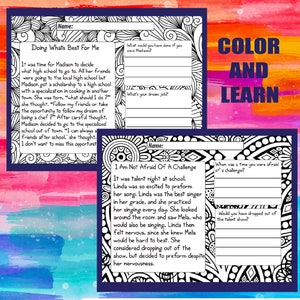 COLOR
AND
LEARN
Name:
Doing Whats Best For Me
It was time for Madison to decide
what high school to go to. All her friends
were going to the local high school but
Madison got a scholarship to a high school
with a specialization in cooking in another
town. She was torn. "what should I do ?"
she thought. "Follow my friends or take
the opportunity to follow my dream of
being a chef ?" After careful thought,
Madison decided to go to the specialised
school out of town. "I can always see my
friends after school. She thought.
I don't want to miss this opportunity
What would you have done if you
were Madison?
What's your dream job?
Name:
I Am Not Afraid Of A Challenge
It was talent night at school.
Linda was so excited to preform
her song. Linda was the best singer
in her grade, and she practiced
her singing every day. She looked
around the room and saw Mela, who
would also be singing. Linda then
felt nervous, since she knew Mela
would be hard to beat. She
considered dropping out of the
show, but decided to preform despite
her nervousness.
When was a time you were afraid
of a challenge?
Would you have dropped out of
the talent show?